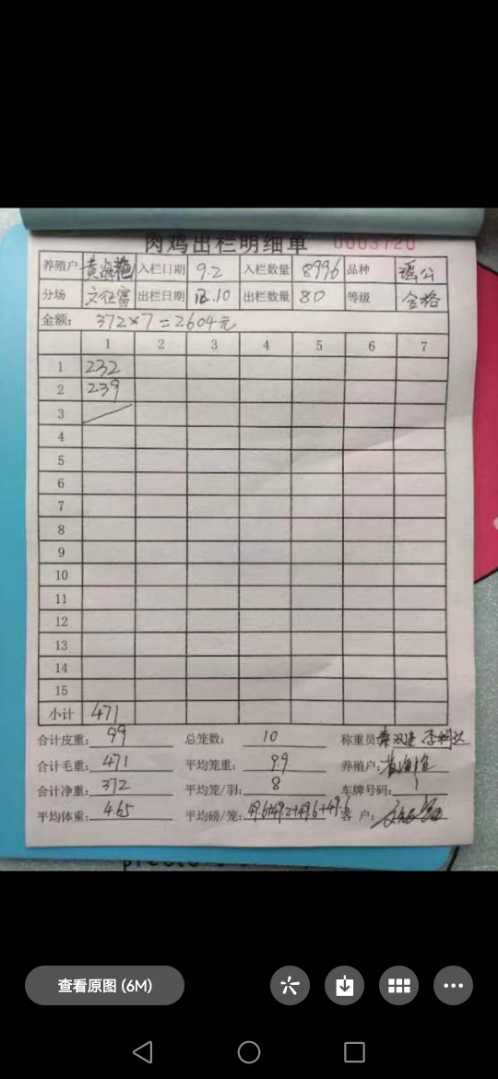 肉鸡出栏明细单 0003720
养殖户 入栏日期 9.2 入栏数量 8996 品种 瑶公
分场 出栏日期 12.10 出栏数量 80 等级 合格
金额: 372×7=2604元
1 2 3 4 5 6 7
1 232
2 239
3
4
5
6
7
8
9
10
11
12
13
14
15
小计 471
合计皮重: 99 总笼数: 10 称重员
合计毛重: 471 平均笼重: 9.9 养殖户:
合计净重: 372 平均笼/羽: 8 车牌号码:
平均体重: 4.65 平均磅/笼: 客 户:
查看原图 (6M)